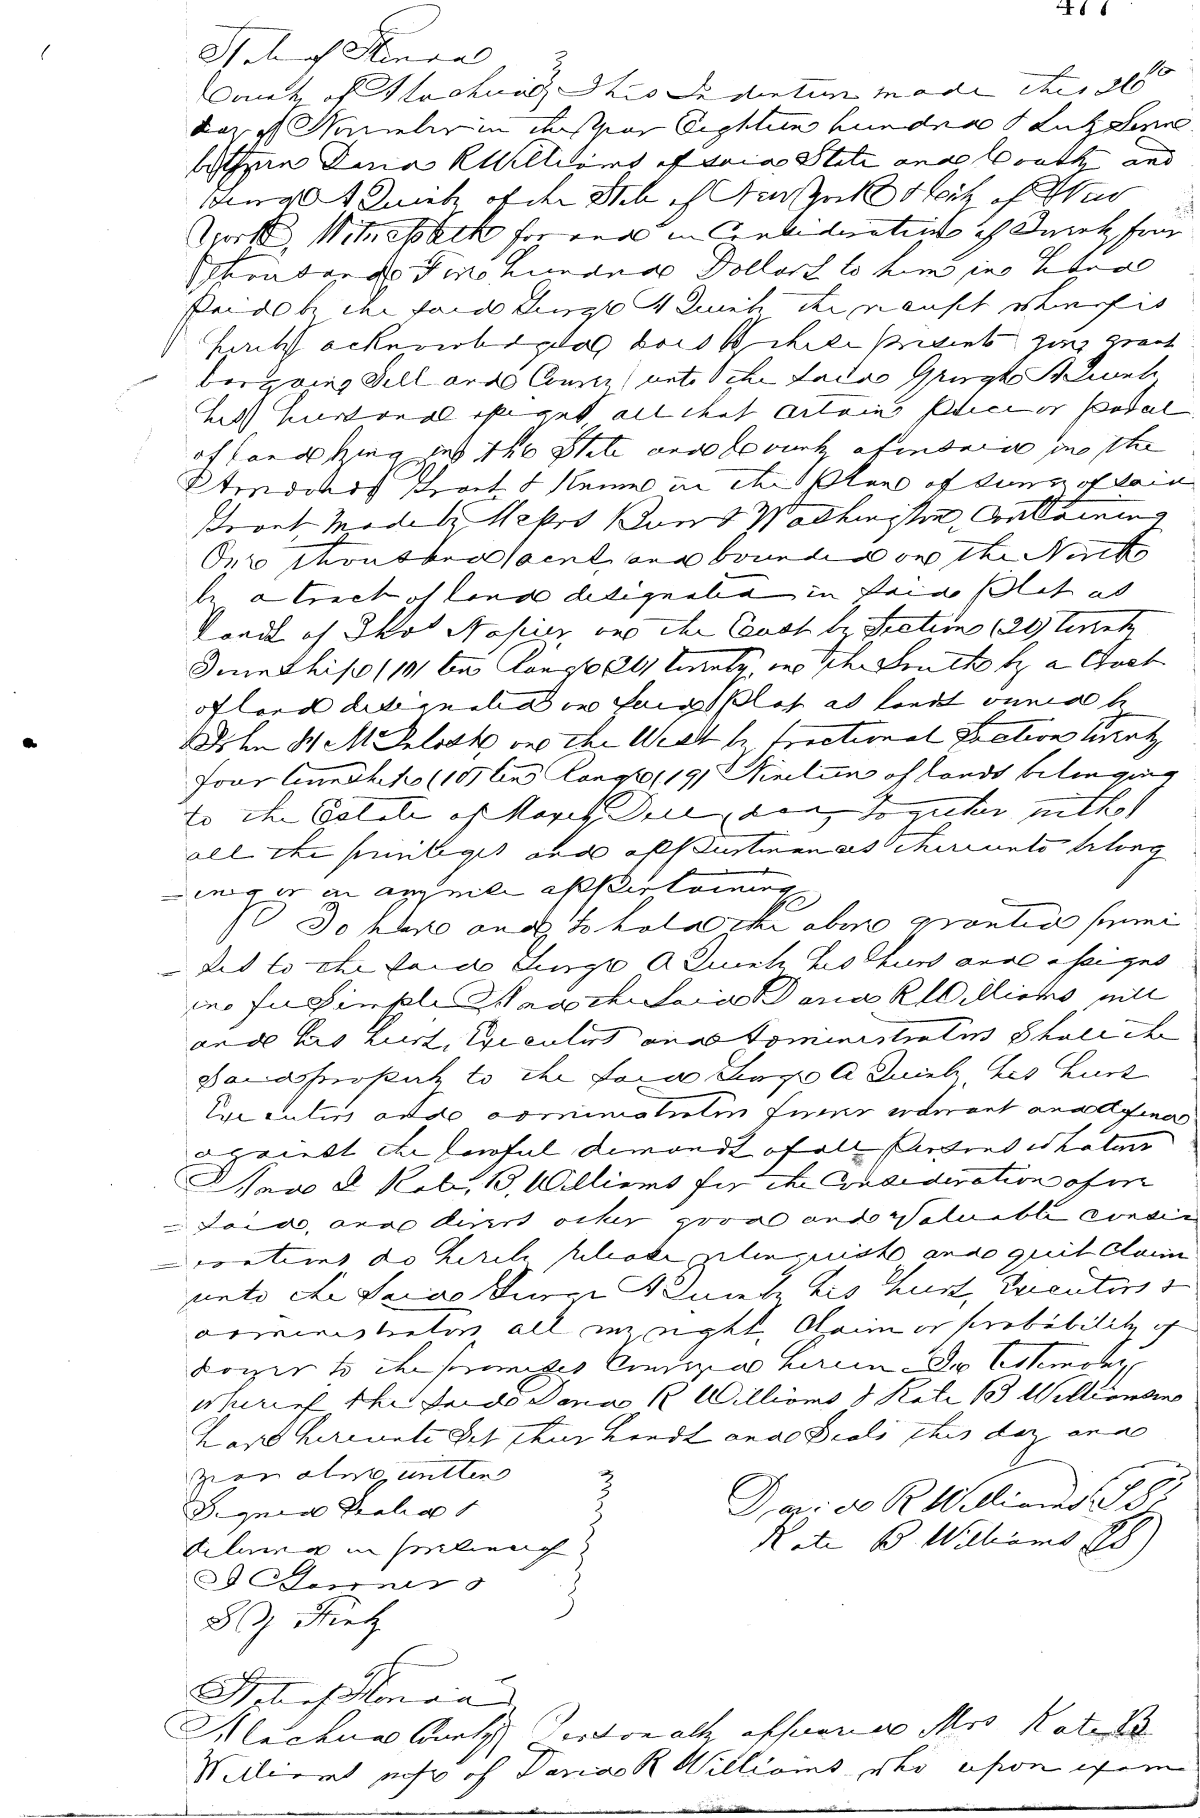 477
State of Florida
County of Alachua This Indenture made this 26th
day of November in the Year Eighteen hundred & Sixty Seven
between David R Williams of said State and County and
George A Quinby of the State of New York & City of New
York, Witnesseth for and in Consideration of Twenty four
thousand Five hundred Dollars to him in hand
Paid by the said George A Quinby the receipt whereof is
hereby acknowledged does by these presents give grant
bargain Sell and Convey unto the said George A Quinby
his heirs and assigns, all that certain Piece or parcel
of land lying in the State and County aforesaid in the
Arredondo Grant & Known in the Plan of survey of said
Grant, Made by Messrs Burr & Washington, Containing
One thousand acres, and bounded on the North
by a tract of land designated in said Plat as
lands of Thos Napier, on the East by Section (20) twenty
Township (10) ten Range (20) twenty, on the South by a tract
of land designated on said Plat as lands owned by
John H McIntosh, on the West by fractional Section twenty
four township (10) ten Range (19) Nineteen of lands belonging
to the Estate of Moses Dell, dec, together with
all the privileges and appurtinances thereunto belong
=ing or in any wise appertaining
To have and to hold the above granted premi
=ses to the said George A Quinby his heirs and assigns
in fee Simple And the Said David R Williams will
and his heirs, Executors and Administrators Shall the
Said property to the said George A Quinby, his heirs
Executors and administrators forever warrant and defend
against the lawful demands of all Persons whatever
And I Kate, B, Williams for the Consideration afore
=said, and divers other good and Valuable consid
=erations do hereby release relinquish and quit Claim
unto the said George A Quinby his heirs, Executors &
administrators all my right, Claim or probability of
dower to the premises Conveyed herein. In testimony
whereof the said David R Williams & Kate B Williams
have hereunto Set their hands and Seals this day and
year above written
Signed Sealed &
delivered in presence of
David R Williams (LS)
Kate B Williams (LS)
State of Florida
Alachua County Personally appeared Mrs Kate B
Williams wife of David R Williams who upon exam